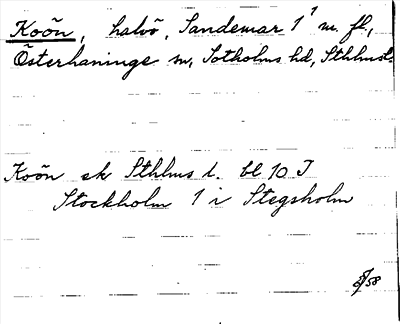 Koön, halvö, Sandemar 1¹ m. fl.,
Österhaninge sn, Sotholms hd, Sthlmsl.
Koön ek Sthlms l. bl 10 I
Stockholm 1 i Stegsholm
58